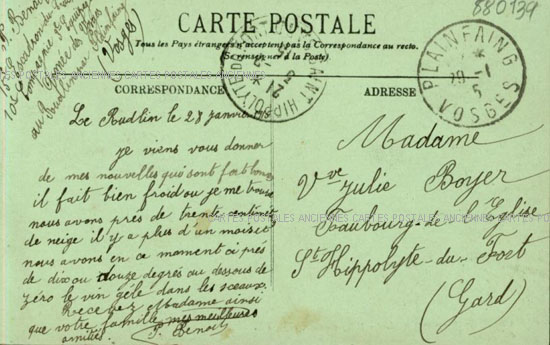 880139
CARTE POSTALE
Tous les Pays étrangers n'acceptent pas la Correspondance au recto.
(Se renseigner à la Poste)
CORRESPONDANCE
ADRESSE
PLAINFAING
VOSGES
P. Benoit
(Vosges)
Le Rudlin le 28 janvier
je viens vous donner
de mes nouvelles qui sont fort bonnes
il fait bien froid ou je me trouve
nous avons prés de trente centimet
de neige il y a plus d'un mois et
nous avons en ce moment ci prés
de dix ou douze degrés au dessous de
zéro le vin gèle dans les sceaux.
Recevez Madame ainsi
que votre famille mes meilleures
amitiés. P. Benoit
Madame
Vve Julie Boyer
Faubourg de l'Eglise
St Hippolyte-du-Fort
(Gard)
CARTES POSTALES ANCIENNES CARTES POSTALES ANCIENNES CARTES POSTALES ANCIENNES